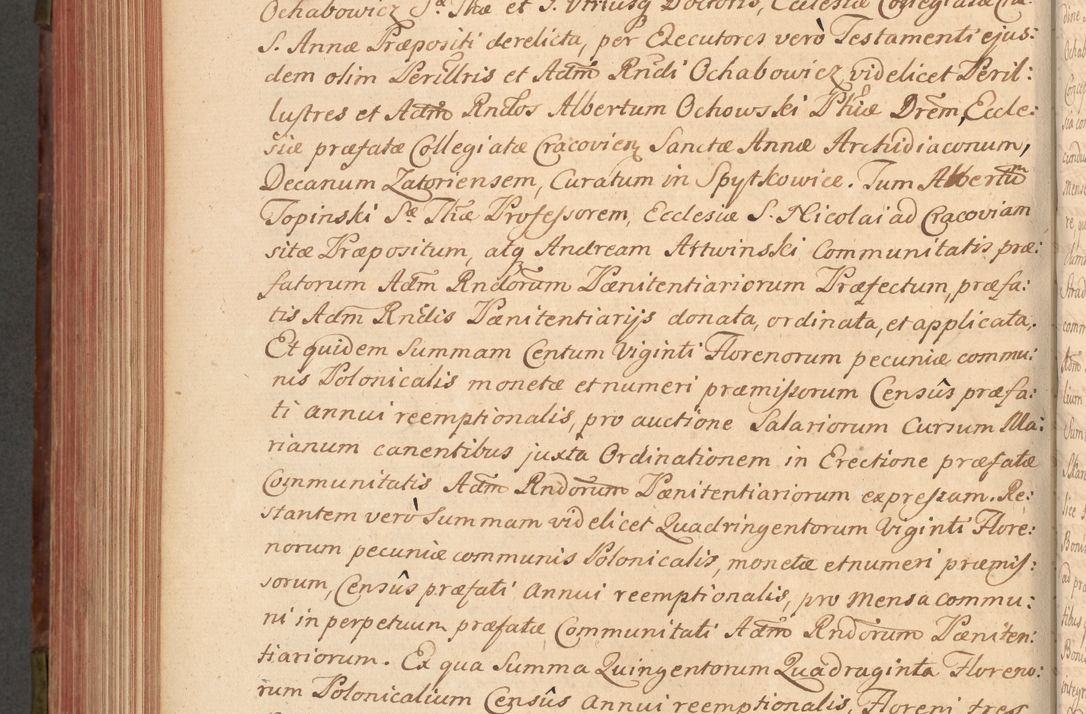 Ochabowicz Sæ Thæ et J. Utriusq Doctoris, Ecclesiæ Collegiatæ Cra:
S. Annæ Præpositi derelicta, per Executores verò Testamenti ejus:
dem olim Perillris et Adm Rndi Ochabowicz, videlicet Peril:
lustres et Adm Rndos Albertum Ochowski Phiæ Drem, Eccle:
siæ præfatæ Collegiatæ Cracovien Sanctæ Annæ Archidiaconum,
Decanum Zatoriensem, Curatum in Spytkowice. Tum Albertum
Topinski Sæ Thæ Professorem, Ecclesiæ S. Nicolai ad Cracoviam
sitæ Præpositum, atq Andream Artwinski Communitatis præ:
fatorum Adm Rndorum Pænitentiariorum Præfectum, præfa:
tis Adm Rndis Pænitentiarijs donata, ordinata, et applicata,.
Et quidem Summam Centum Viginti Florenorum pecuniæ commu:
nis Polonicalis monetæ et numeri præmissorum Censûs præfa:
ti annui reemptionalis, pro auctione Salariorum Cursum Ma:
rianum canentibus juxta Ordinationem in Erectione præfatæ
Communitatis Adm Rndorum Pænitentiariorum expressam. Re:
stantem verò Summam videlicet Quadringentorum Viginti Flore:
norum pecuniæ communis Polonicalis, monetæ et numeri præmis:
sorum, Censûs præfati annui reemptionalis, pro Mensa commu:
ni in perpetuum præfatæ Communitati Adm Rndorum Pæniten:
tiariorum. Ex qua Summa Quingentorum Quadraginta Floreno:
rum Polonicalium Censûs annui reemptionalis, Floreni tres